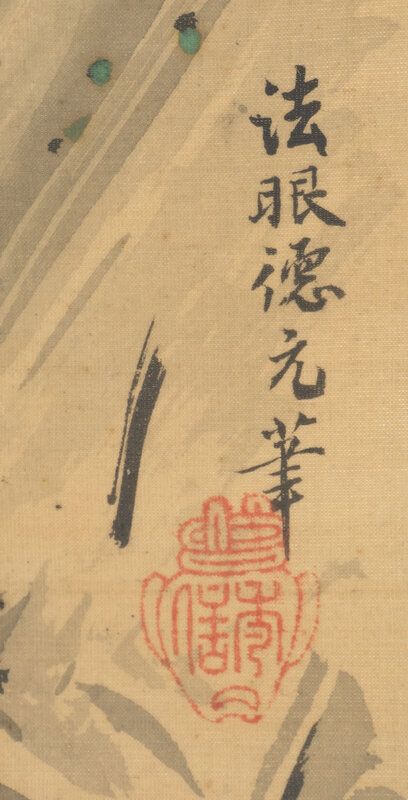 法眼德元筆